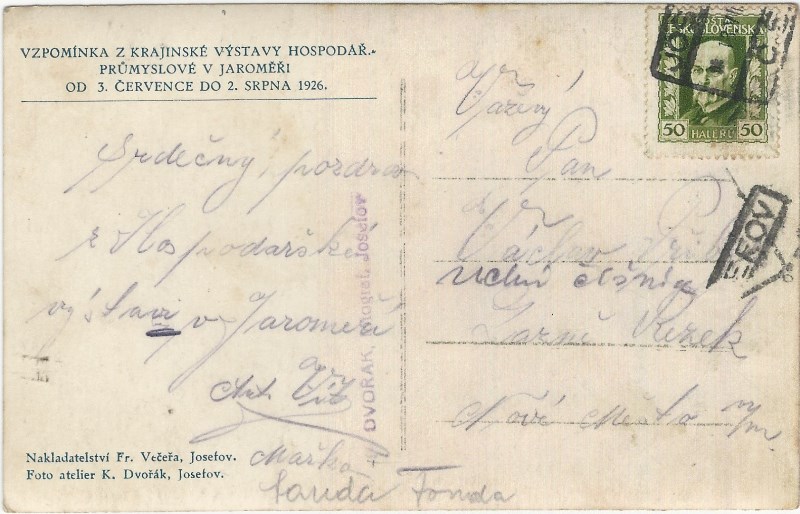 VZPOMÍNKA Z KRAJINSKÉ VÝSTAVY HOSPODÁŘ.-
PRŮMYSLOVÉ V JAROMĚŘI
OD 3. ČERVENCE DO 2. SRPNA 1926.
Srdečný pozdrav
z Hospodářské
výstavi v Jaroměři
Ant. Vít
Mařka
Lauda Fonda
Nakladatelství Fr. Večeřa, Josefov.
Foto atelier K. Dvořák, Josefov.
DVOŘÁK, fotograf, Josefov
POŠTA
ČESKOSLOVENSKÁ
50 HALÉŘŮ 50
Vážený
Pan
Václav
učni
Nové Město n/m